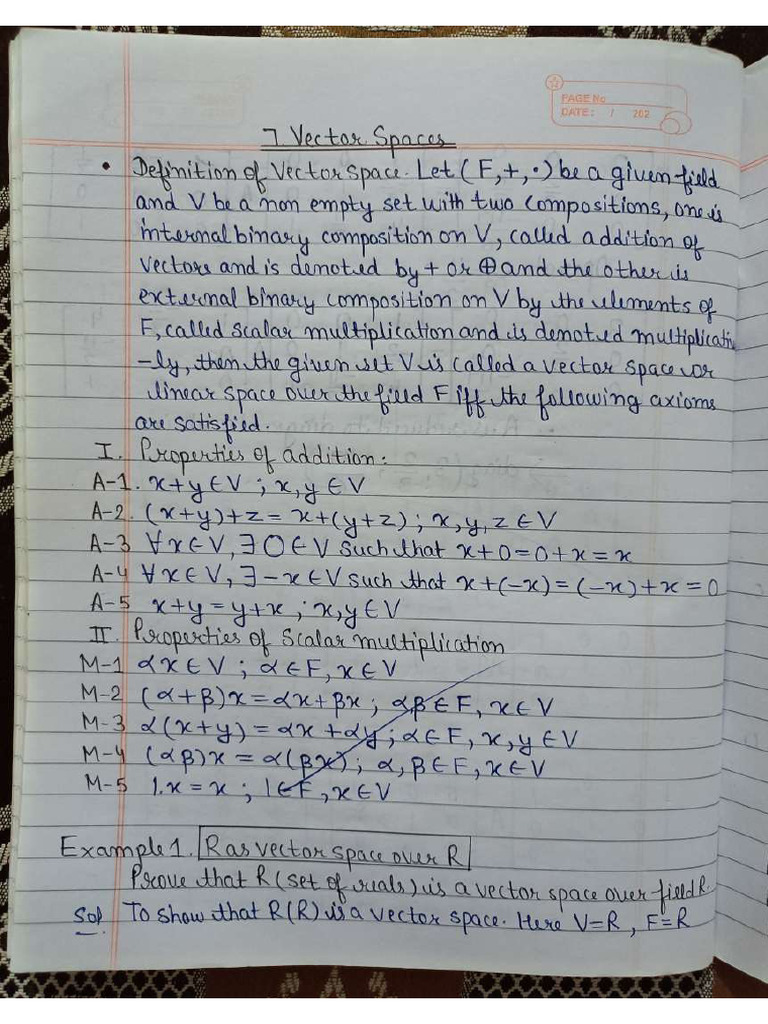 PAGE No
DATE: / 202
7 Vector Spaces
• Definition of Vector space. Let (F,+,·) be a given field
and V be a non empty set with two compositions, one is
internal binary composition on V, called addition of
vectors and is denoted by + or ⊕ and the other is
external binary composition on V by the elements of
F, called scalar multiplication and is denoted multiplicativ
-ly, then the given set V is called a vector space or
linear space over the field F iff the following axioms
are satisfied.
I. Properties of addition:
A-1. x+y∈V ; x,y∈V
A-2. (x+y)+z = x+(y+z) ; x,y,z∈V
A-3 ∀x∈V, ∃ 0∈V such that x+0=0+x=x
A-4 ∀x∈V, ∃ -x∈V such that x+(-x)=(-x)+x=0
A-5 x+y=y+x ; x,y∈V
II. Properties of Scalar multiplication
M-1 αx∈V ; α∈F, x∈V
M-2 (α+β)x=αx+βx ; α,β∈F, x∈V
M-3 α(x+y)=αx+αy ; α∈F, x,y∈V
M-4 (αβ)x=α(βx) ; α,β∈F, x∈V
M-5 1.x=x ; 1∈F, x∈V
Example 1. R as vector space over R
Prove that R (set of reals) is a vector space over field R.
Sol To show that R(R) is a vector space. Here V=R, F=R